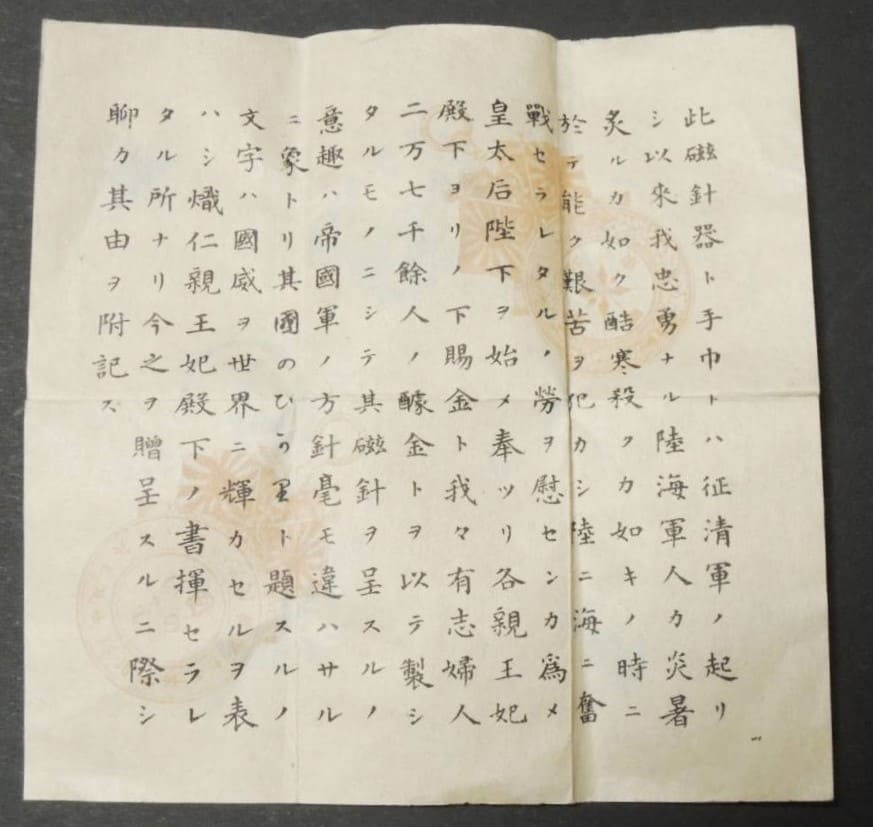 此磁針器ト手巾トハ征清軍ノ起リ
シ以來我忠勇ナル陸海軍人カ炎暑
炙ルカ如ク酷寒殺クカ如キノ時ニ
於テ能ク艱苦ヲ犯カシ陸ニ海ニ奮
戰セラレタルノ勞ヲ慰センカ爲メ
皇太后陛下ヲ始メ奉ツリ各親王妃
殿下ヨリノ下賜金ト我々有志婦人
二万七千餘人ノ醵金トヲ以テ製シ
タルモノニシテ其磁針ヲ呈スルノ
意趣ハ帝國軍ノ方針毫モ違ハサル
ニ象トリ其國のひかりト題スルノ
文字ハ國威ヲ世界ニ輝カセルヲ表
ハシ熾仁親王妃殿下ノ書揮セラレ
タル所ナリ今之ヲ贈呈スルニ際シ
聊カ其由ヲ附記ス